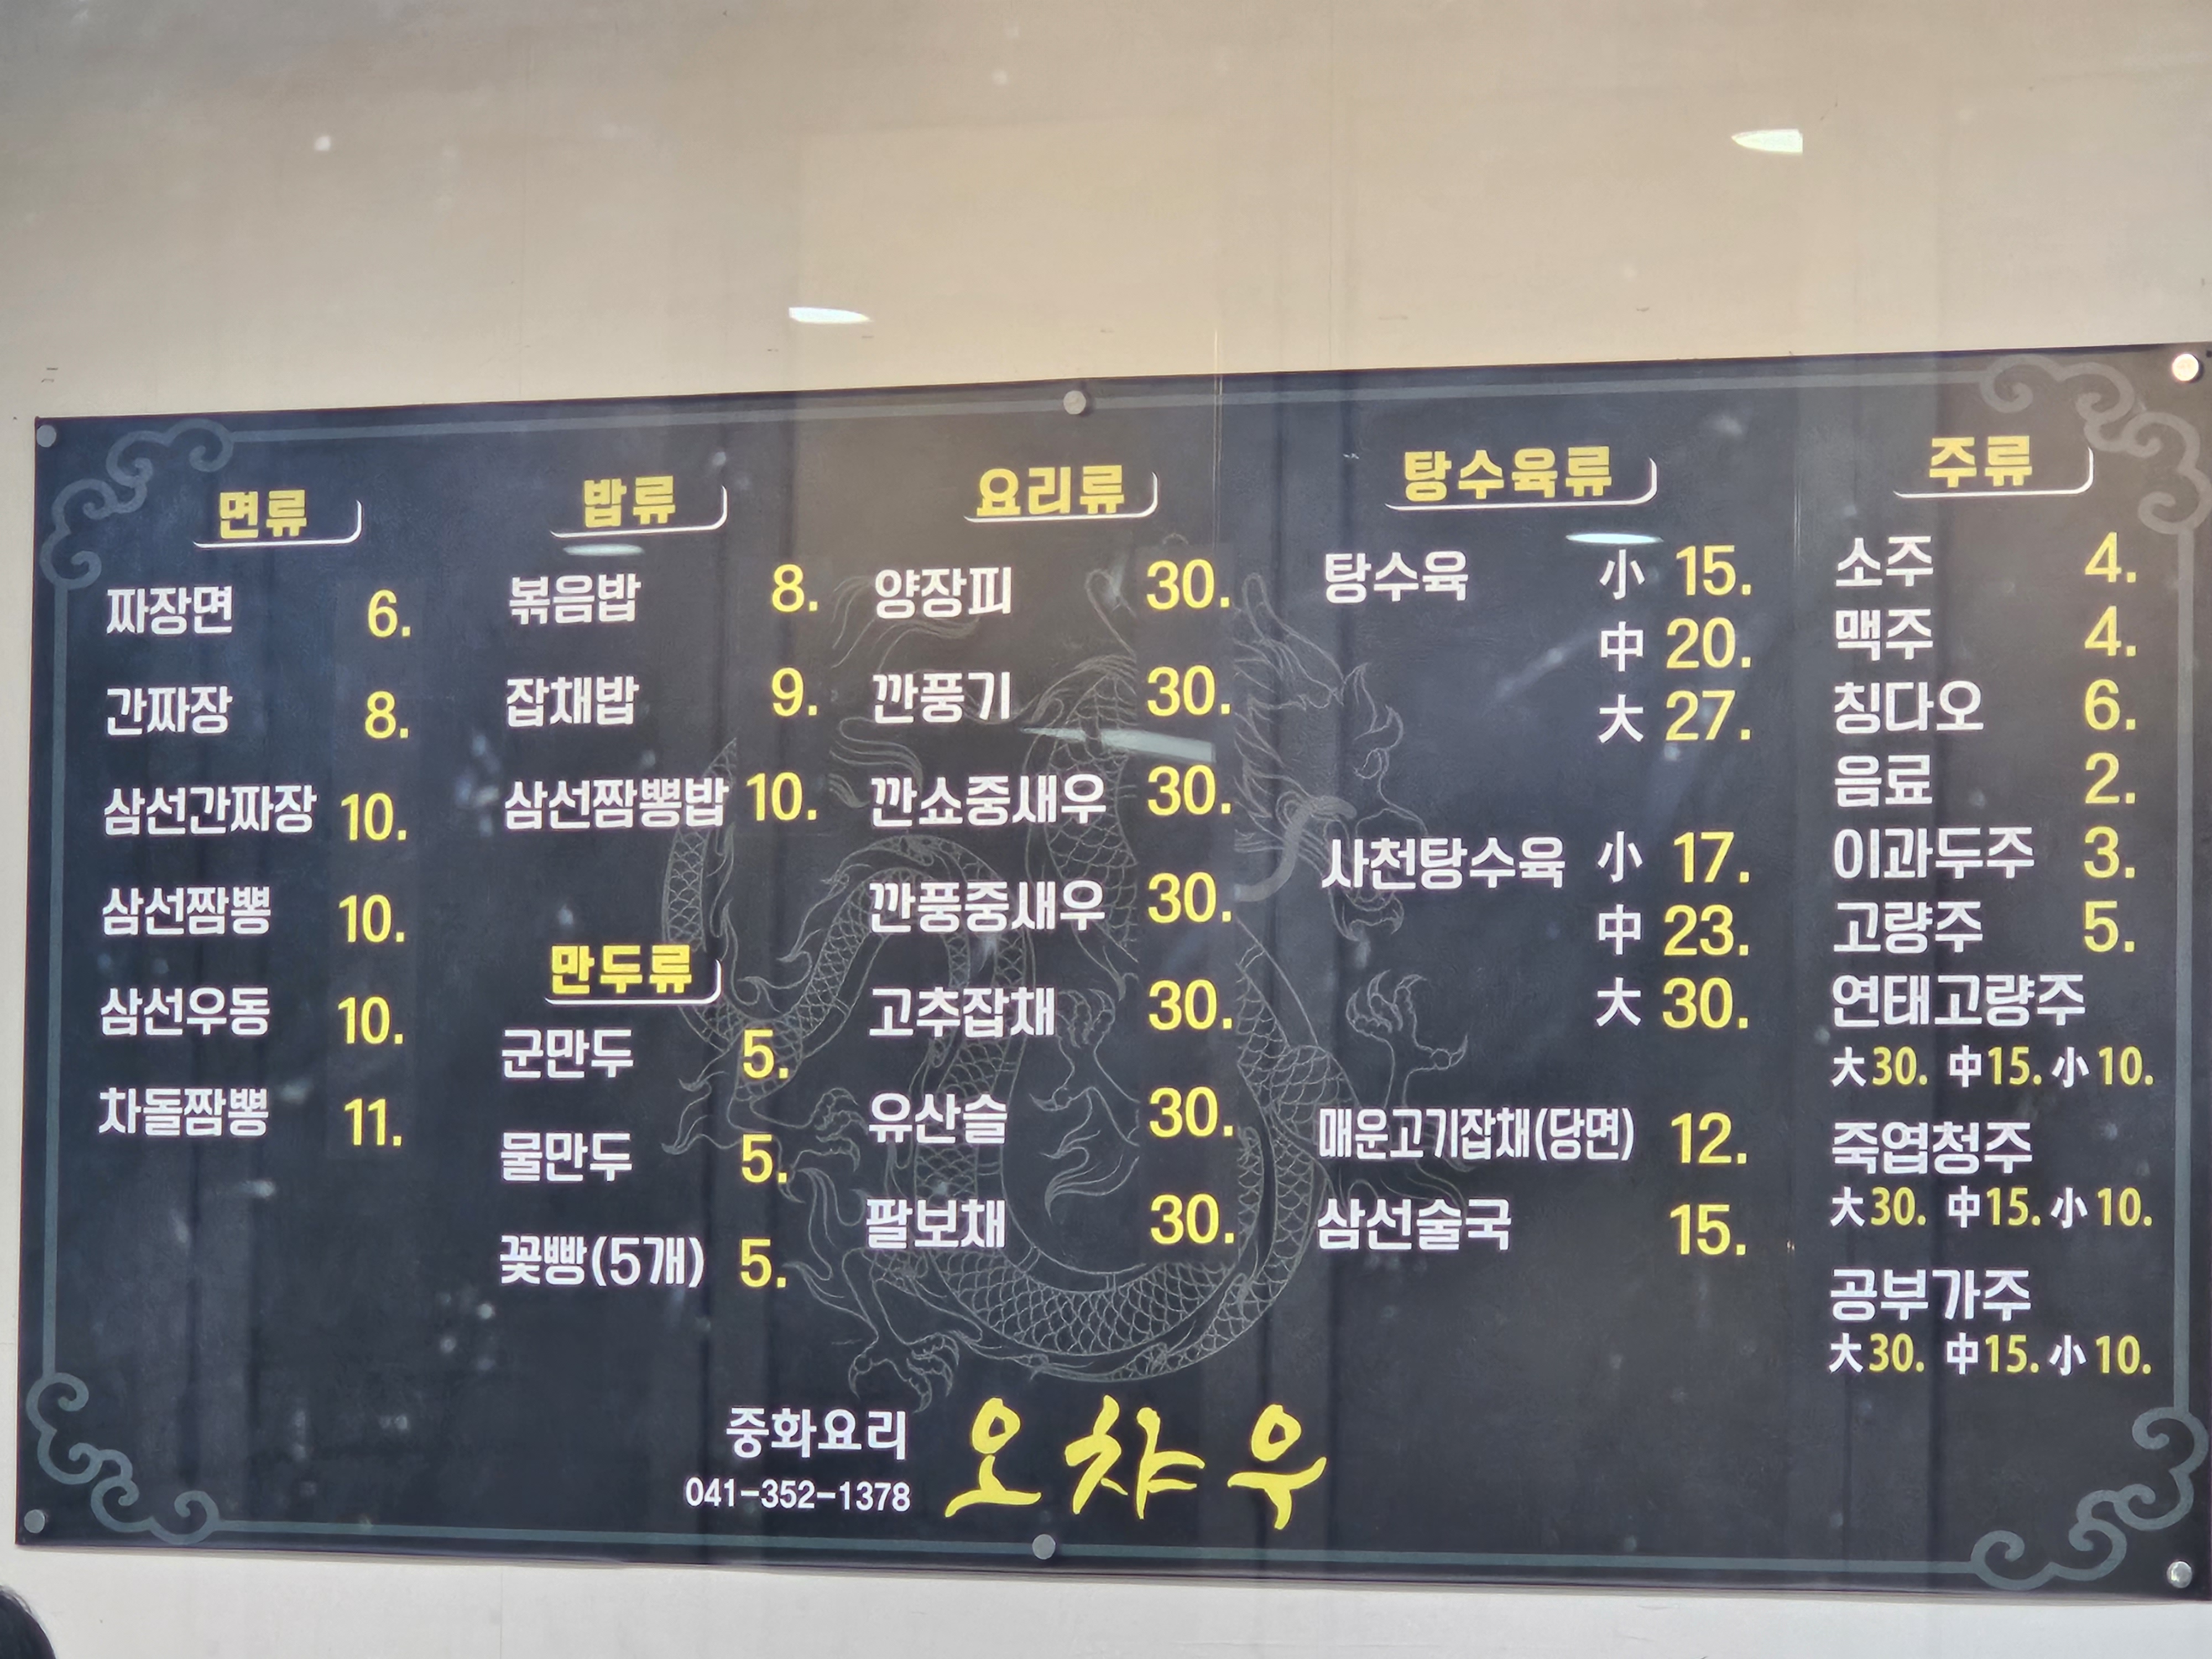 면류
짜장면 6.
간짜장 8.
삼선간짜장 10.
삼선짬뽕 10.
삼선우동 10.
차돌짬뽕 11.
밥류
볶음밥 8.
잡채밥 9.
삼선짬뽕밥 10.
만두류
군만두 5.
물만두 5.
꽃빵(5개) 5.
요리류
양장피 30.
깐풍기 30.
깐쇼중새우 30.
깐풍중새우 30.
고추잡채 30.
유산슬 30.
팔보채 30.
탕수육류
탕수육 小 15.
中 20.
大 27.
사천탕수육 小 17.
中 23.
大 30.
매운고기잡채(당면) 12.
삼선술국 15.
주류
소주 4.
맥주 4.
칭다오 6.
음료 2.
이과두주 3.
고량주 5.
연태고량주
大30. 中15. 小10.
죽엽청주
大30. 中15. 小10.
공부가주
大30. 中15. 小10.
중화요리
041-352-1378
오챠우